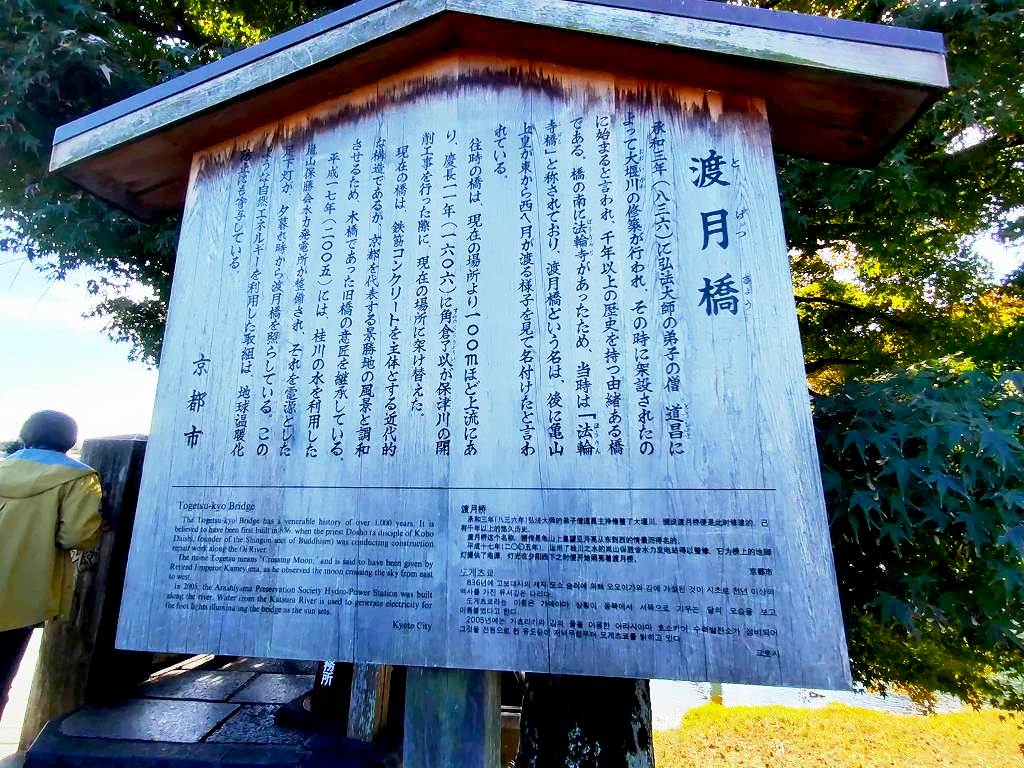 渡月橋
とげつきょう
承和三年(八三六)に弘法大師の弟子の僧 道昌に
よって大堰川の修築が行われ、その時に架設されたの
に始まると言われ、千年以上の歴史を持つ由緒ある橋
である。橋の南に法輪寺があったため、当時は「法輪
寺橋」と称されており、渡月橋という名は、後に亀山
上皇が東から西へ月が渡る様子を見て名付けたと言わ
れている。
往時の橋は、現在の場所より一〇〇mほど上流にあ
り、慶長一一年(一六〇六)に角倉了以が保津川の開
削工事を行った際に、現在の場所に架け替えた。
現在の橋は、鉄筋コンクリートを主体とする近代的
な構造であるが、京都を代表する景勝地の風景と調和
させるため、木橋であった旧橋の意匠を継承している。
平成一七年(二〇〇五)には、桂川の水を利用した
嵐山保勝会水力発電所が整備され、それを電源とした
足下灯が、夕暮れ時から渡月橋を照らしている。この
ような自然エネルギーを利用した取組は、地球温暖化
防止にも寄与している。
京都市
Togetsu-kyo Bridge
The Togetsu-kyo Bridge has a venerable history of over 1,000 years. It is
believed to have been first built in 836, when the priest Dosho (a disciple of Kobo
Daishi, founder of the Shingon sect of Buddhism) was conducting construction
repair work along the Oi River.
The name Togetsu means "Crossing Moon," and is said to have been given by
Retired Emperor Kameyama, as he observed the moon crossing the sky from east
to west.
In 2005, the Arashiyama Preservation Society Hydro-Power Station was built
along the river. Water from the Katsura River is used to generate electricity for
the foot lights illuminating the bridge as the sun sets.
Kyoto City
渡月桥
承和三年(八三六年)弘法大师的弟子僧道昌主持修整了大堰川，据说渡月桥便是此时修建的，已
有千年以上的悠久历史。
渡月桥这个名称，据传是龟山上皇望见月亮从东到西的情景而得名的。
平成十七年(二〇〇五年)，运用了桂川之水的岚山保胜会水力发电站得以整修，它为桥上的地脚
灯提供了电源，灯光在夕阳西下之时便开始照亮着渡月桥。
京都市
도게츠쿄
836년에 고보대사의 제자 도쇼 슬려에 의해 오오이가와 강에 가설된 것이 시초로 천년 이상의
역사를 가진 유서깊은 다리다.
도게츠쿄라는 이름은 가메야마 상황이 동쪽에서 서쪽으로 기우는 달의 모습을 보고
이름붙였다고 한다.
2005년에는 가츠라가와 강의 물을 이용한 아라시야마 호쇼카이 수력발전소가 정비되어
그것을 전원으로 한 유도등이 저녁무렵부터 도게츠쿄를 밝히고 있다.
교토시
務所